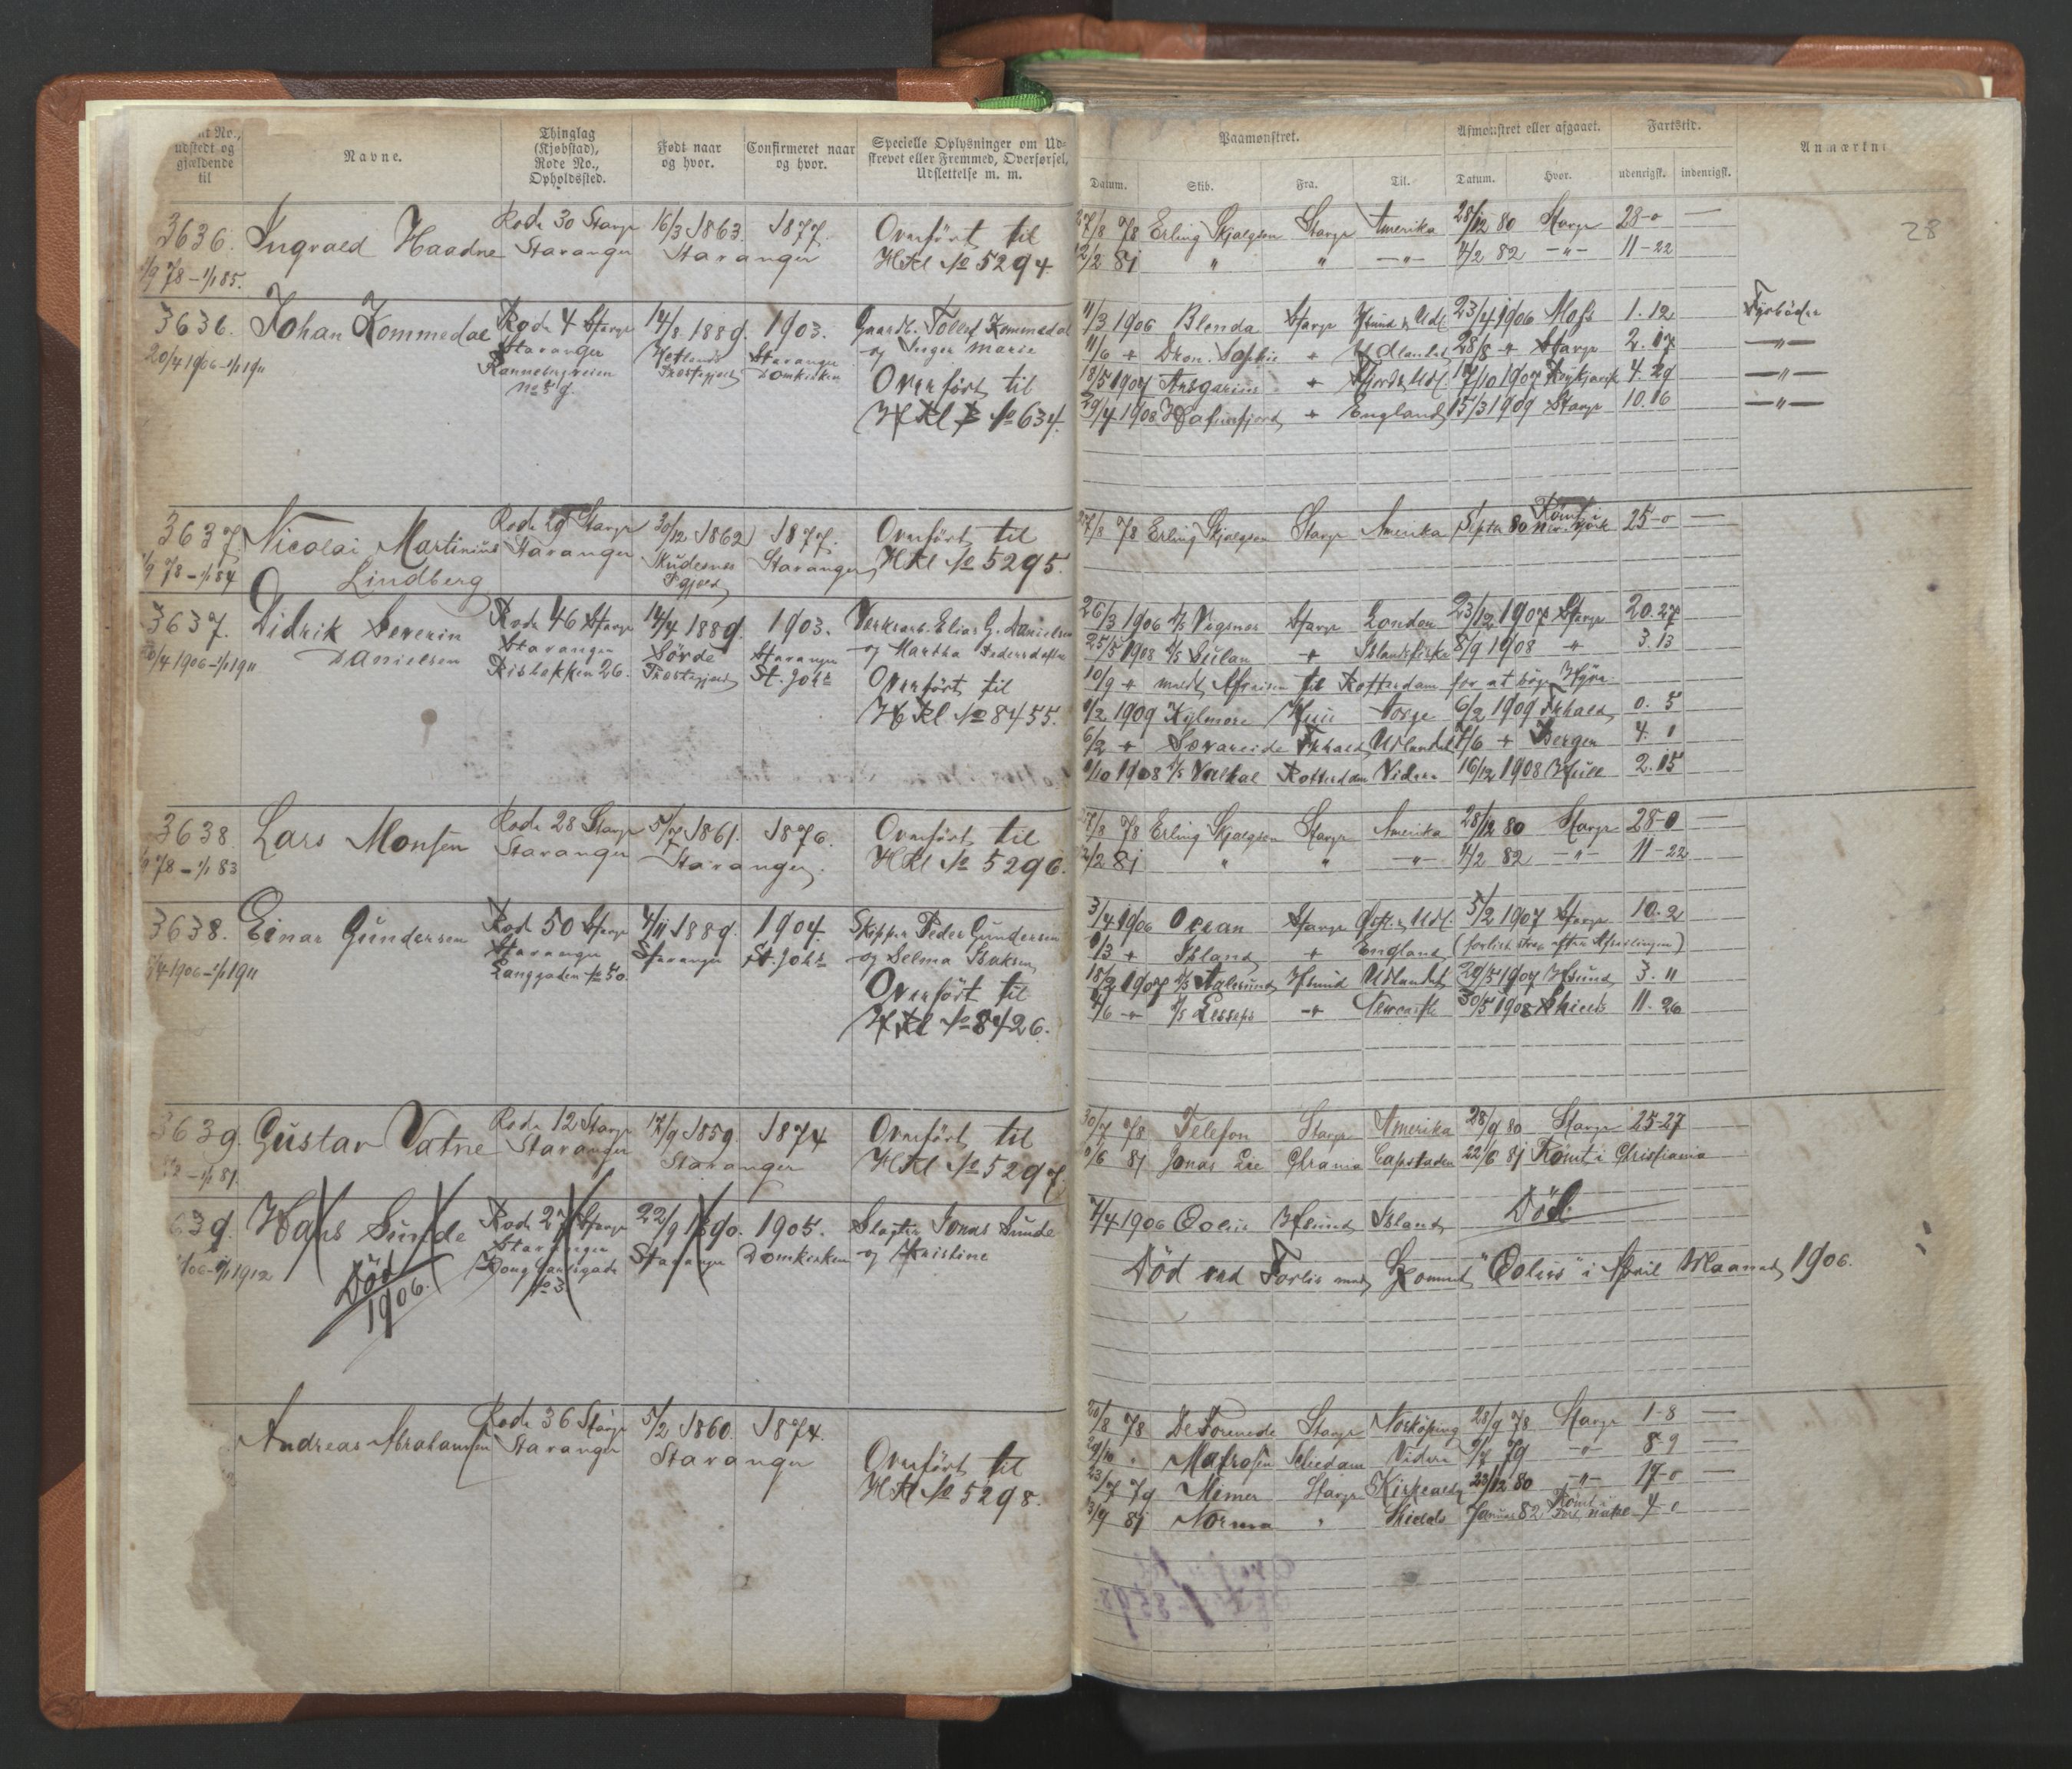 nt No., udstedt og gjældende til | Navne. | Thinglag (Kjøbstad), Rode No., Opholdssted. | Født naar og hvor. | Confirmeret naar og hvor. | Specielle Oplysninger om Ud- skrevet eller Fremmed, Overførsel, Udslettelse m. m.
Paamønstret. | Afmønstret eller afgaaet. | Fartstid. | Anmærkn
Datum. | Skib. | Fra. | Til. | Datum. | Hvor. | udenrigsk. | indenrigsk.
28
3636. Ingvald Haadne Rode 30 Stavgr 16/3 1863. 1877. Overført til
1/9 78 - 1/1 85. Stavanger Stavanger HRl No 5294
27/8 78 Erling Skjalgson Stavgr Amerika 28/12 80 Stavgr 28-0 —
12/2 81 " " —"— 4/2 82 —"— 11-22
3636. Johan Kommedal Rode 4 Stavgr 14/8 1889. 1903.
20/4 1906 - 1/1 1911 Stavanger Hetlands Stavanger og Inger Marie
No 59. Præstegjeld Domkirken Overført til
No 634.
11/3 1906 Blenda Stavgr Udl. 23/4 1906 Moss 1. 12 Fyrbøder
11/6 + Dron. Sophie + Udlandet 28/8 + Stavgr 2. 17 —"—
18/5 1907 Ansgarius + 17/10 1907 Reykjavik 4. 29 —"—
29/4 1908 Hafursfjord + England 15/3 1909 Stavgr 10. 16 —"—
3637. Nicolai Martinius Rode 29 Stavgr 30/12 1862 1877. Overført til
1/9 78 - 1/1 84 Lindberg Stavanger Skudesnes Stavanger HRl No 5295.
Pgjeld
27/8 78 Erling Skjalgson Stavgr Amerika Septr 80 Rømt i New York 25-0 —
3637. Didrik Severin Rode 46 Stavgr 14/4 1889. 1903. Verksarb. Elias G. Danielsen
20/4 1906 - 1/1 1911 Danielsen Stavanger Sørde Stavanger og Martha Pedersdatter
Risbakken 26. Præstegjeld St. Johs Overført til
HRl No 8455.
26/3 1906 Vigsnes Stavgr London 23/12 1907 Stavgr 20. 27
25/5 1908 Sulan + Islandsfiske 8/9 1908 + 3. 13
10/9 + meldt Afreisen til Rotterdam for at søge Hyre
1/2 1909 Kylmore Norge 6/2 1909 Fr.hald 0. 5
6/2 + Fr.hald Udlandet 7/6 + Bergen 4. 1
1/10 1908 Valhal Rotterdam Videre 16/12 1908 Hull 2. 15
3638 Lars Monsen Rode 28 Stavgr 5/7 1861. 1876. Overført til
1/9 78 - 1/1 83 Stavanger Stavanger. HRl No 5296.
27/8 78 Erling Skjalgson Stavgr Amerika 28/12 80 Stavgr 28-0 —
12/2 81 " " —"— 4/2 82 —"— 11-22
3638. Einar Gundersen Rode 50 Stavgr 4/11 1889. 1904. Skipper Peder Gundersen
1906 - 1/1 1911 Stavanger Stavanger St. Johs og Selma Isaksen
Langgaden No 50. Overført til
HRl No 8426.
3/4 1906 Ocean Stavgr Udl. 5/2 1907 Stavgr 10. 2
1/3 + Island + England (forlist strax efter Afseilingen)
18/2 1907 Aalesund Hfsund Udlandet 29/5 1907 Hfsund 3. 11
4/6 + Lesseps + Newcastle 30/5 1908 Shields 11. 26
3639. Gustav Vatne Rode 12 Stavgr 17/9 1859. 1874 Overført til
78 - 1/1 81. Stavanger Stavanger HRl No 5297.
30/7 78 Telefon Stavgr Amerika 28/9 80 Stavgr 25-27
1/6 81 Jonas Lie Chrania Capstaden 22/6 81 Rømt i Christiania
639. Hans Sunde Rode 27 Stavgr 22/9 1890. 1905. Slagter Jonas Sunde
06 - 1/1 1912 Død 1906. Stavanger Stavanger Domkirken og Kristine
Kong Carlsgade No 3
7/4 1906 Eolus Hfsund Island Død
Død ved Forlis med "Eolus" i April Maaned 1906.
Andreas Abrahamsen Rode 36 Stavgr 5/2 1860. 1874.
Stavanger Stavanger Overført til
HRl No 5298.
20/8 78 De Forenede Stavgr Norköping 28/9 78 Stavgr 1-8 —
29/10 " Matrosen Schiedam Videre 9/7 79 —"— 8-9 —
23/7 79 Mimer Stavgr Kirkcaldy 23/12 80 —"— 17-0 —
13/9 81 Norma " Shields Januar 82 Rømt i 4-0